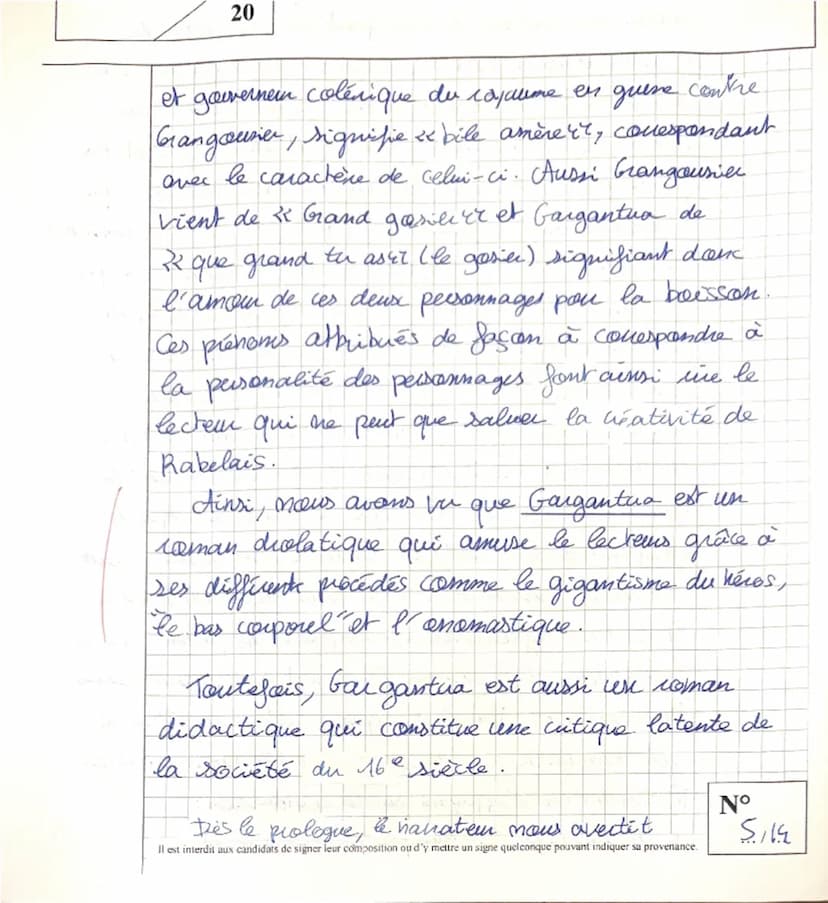 20
et gouverneur colérique du royaume en guerre contre
Grangousier, signifie << bile amère >>, correspondant
avec le caractère de celui-ci. Aussi Grangousier
vient de << Grand gosier >> et Gargantua de
<< que grand tu as >> (le gosier) signifiant donc
l'amour de ces deux personnages pour la boisson.
Ces prénoms attribués de façon à correspondre à
la personalité des personnages font ainsi rire le
lecteur qui ne peut que saluer la créativité de
Rabelais.
Ainsi, nous avons vu que Gargantua est un
roman drolatique qui amuse le lecteurs grâce à
ses différents procédés comme le gigantisme du héros,
"le bas corporel" et l'onomastique.
Toutefois, Gargantua est aussi un roman
didactique qui constitue une critique latente de
la société du 16e siècle.
Dès le prologue, le narrateur nous avertit
N°
5/14
Il est interdit aux candidats de signer leur composition ou d'y mettre un signe quelconque pouvant indiquer sa provenance.